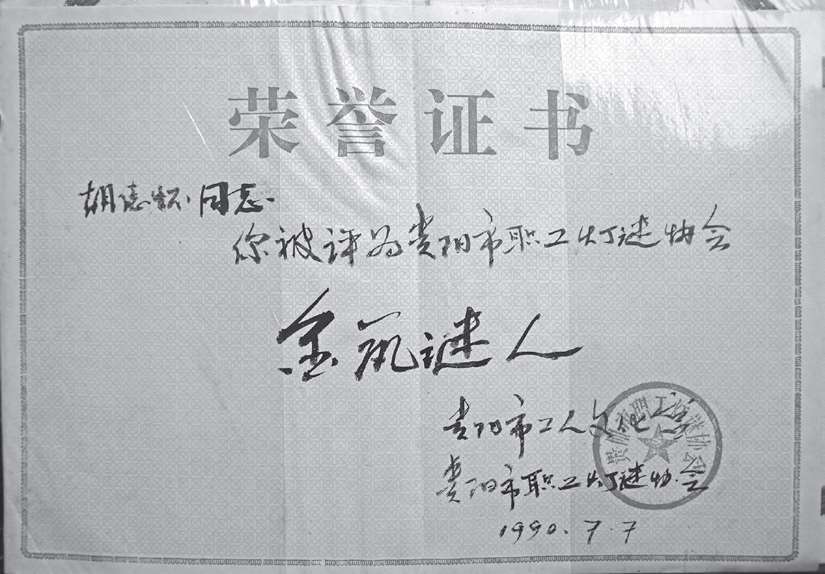 荣誉证书
胡德 同志
你被评为贵阳市职工灯谜协会
金 谜人
贵阳市工人文化宫
贵阳市职工灯谜协会
1990.7.7
贵阳市职工灯谜协会